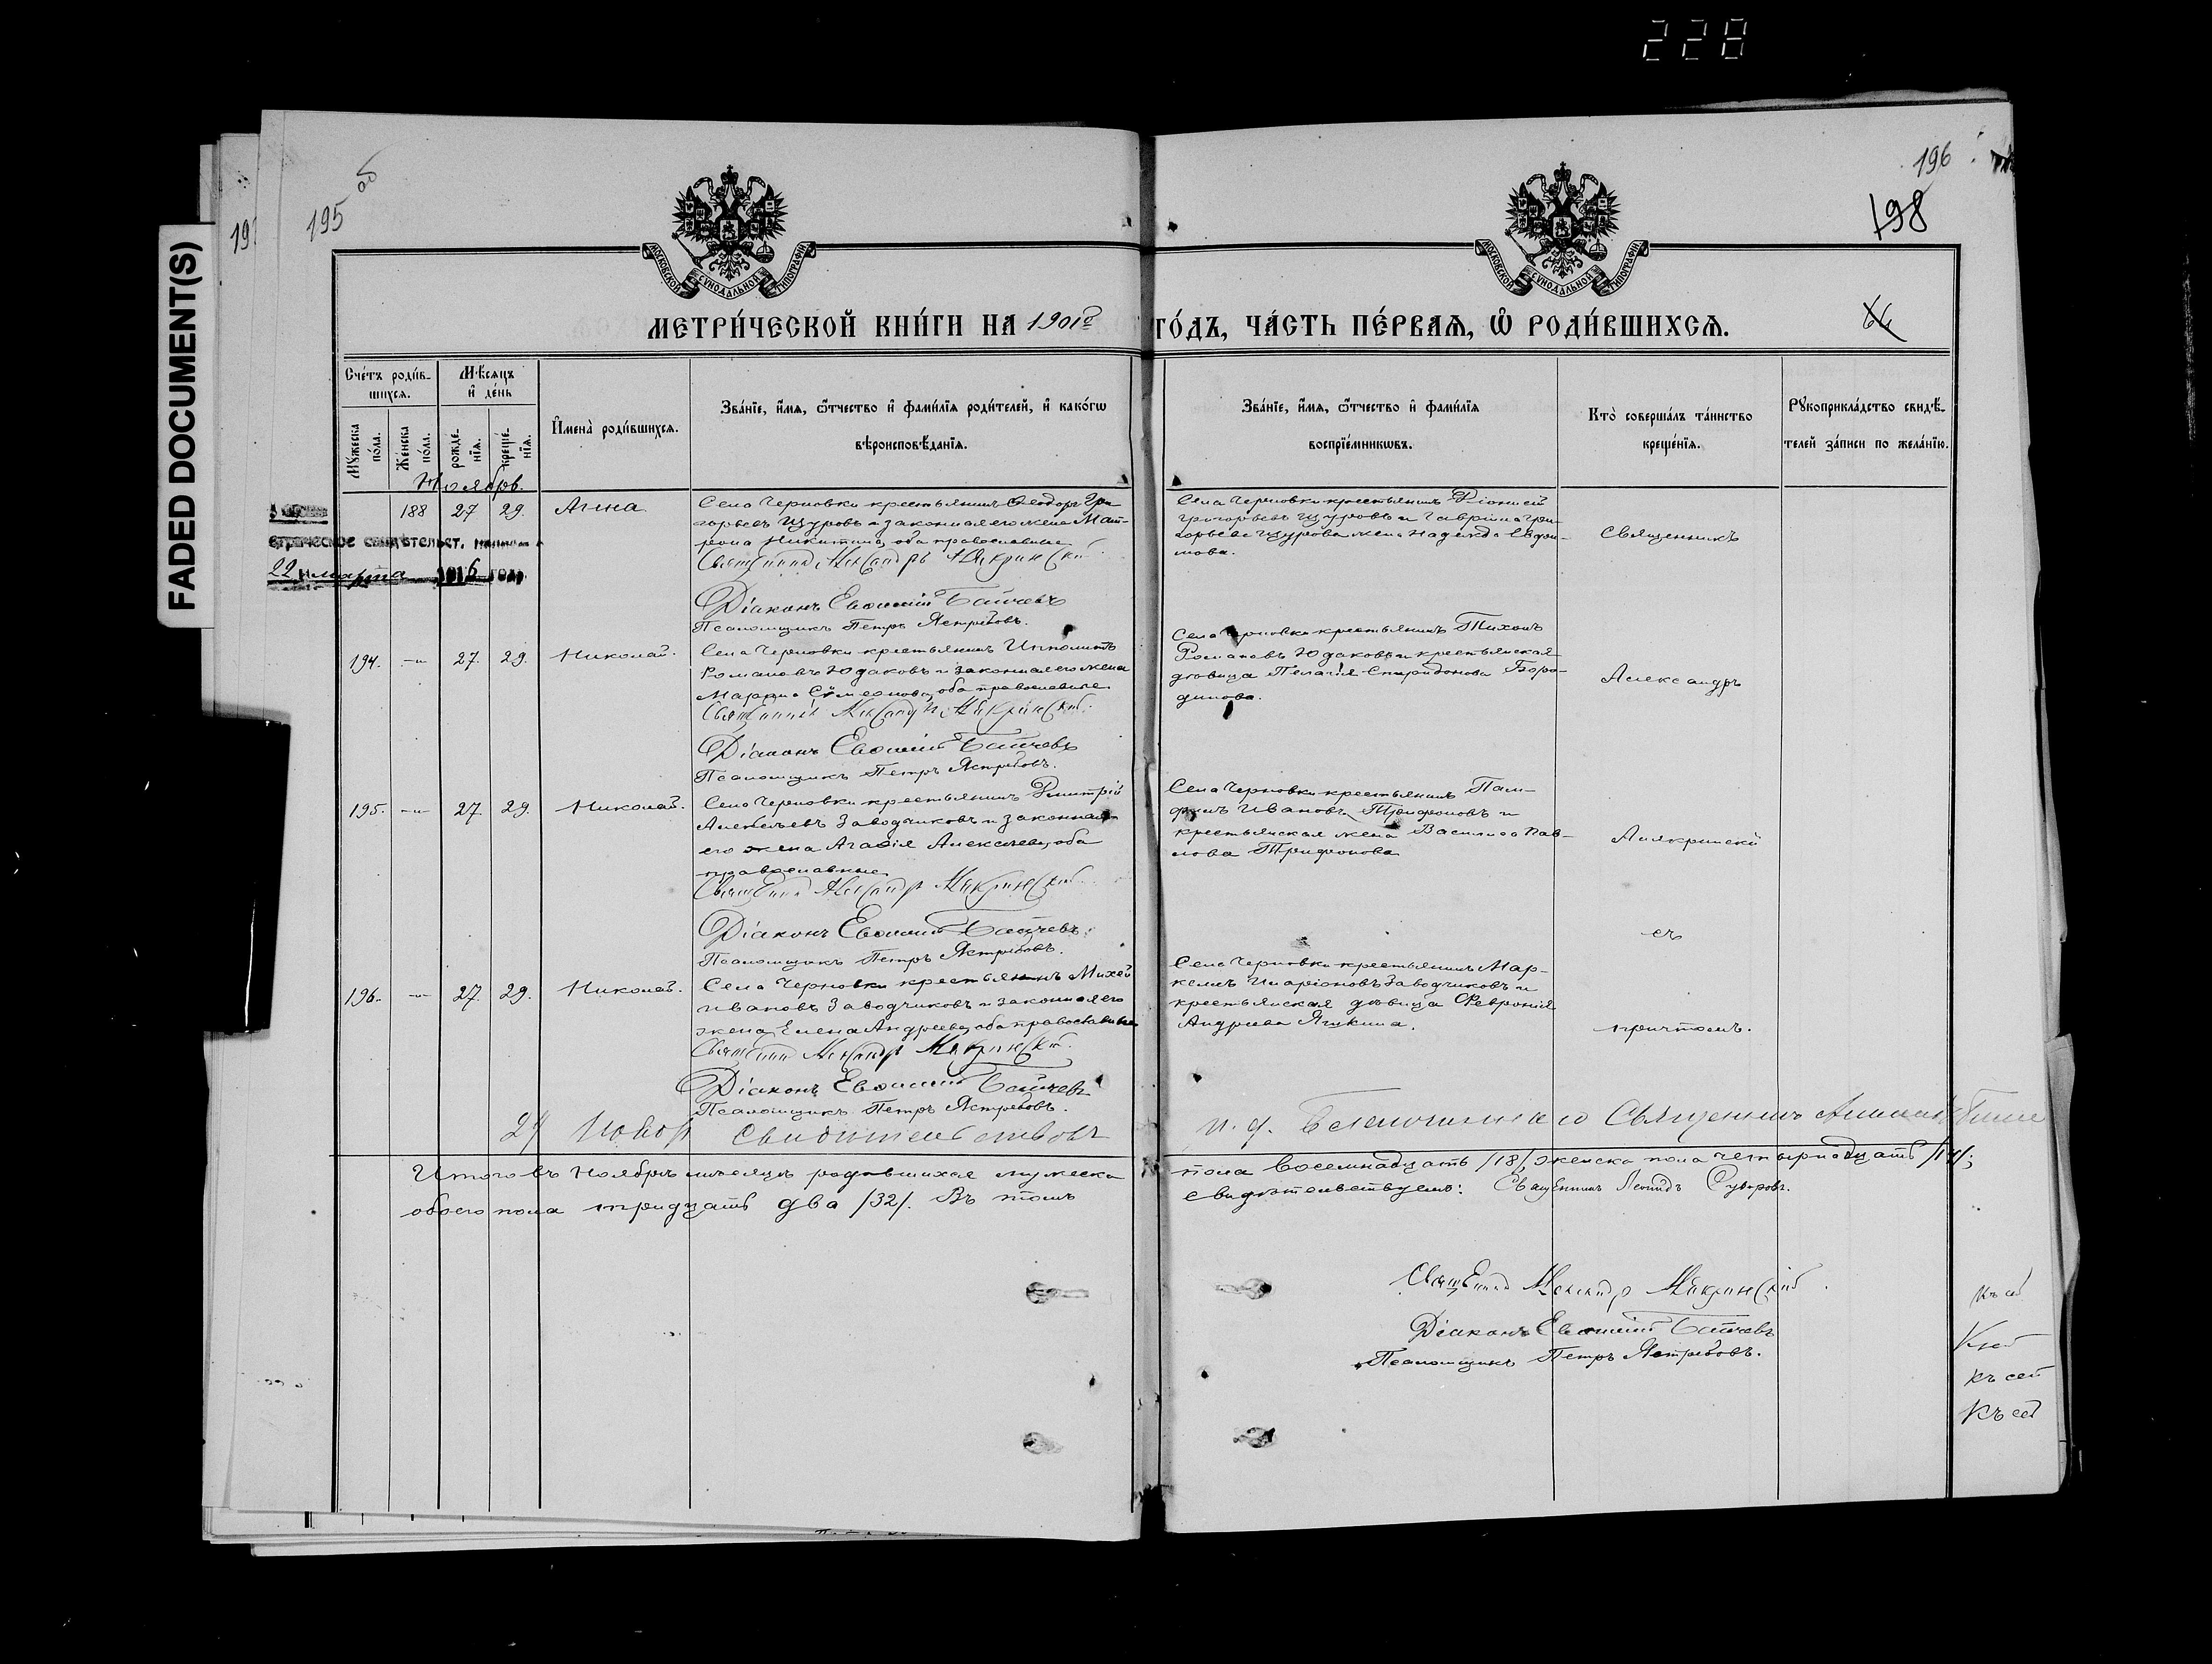 228
FADED DOCUMENT(S)
195 об
196
198
МОСКОВСКОЙ СѴНОДАЛЬНОЙ ТИПОГРАФІИ
МОСКОВСКОЙ СѴНОДАЛЬНОЙ ТИПОГРАФІИ
МЕТРИ́ЧЕСКОЙ КНИ́ГИ НА 1901й ГО́ДЪ, ЧА́СТЬ ПЕ́РВАѦ, Ѡ҆ РОДИ́ВШИХСѦ.
Сче́тъ роди́в-
шихсѧ.
Мѣ́сѧцъ
и҆ де́нь
Мꙋ́жеска
по́ла.
Же́нска
по́ла.
рожде́-
нїѧ.
креще́-
нїѧ.
И҆мена̀ роди́вшихсѧ.
Зва́нїе, и҆́мѧ, ѻ҆́тчество и҆ фами́лїѧ роди́телей, и҆ како́гѡ
вѣроисповѣ́данїѧ.
Зва́нїе, и҆́мѧ, ѻ҆́тчество и҆ фами́лїѧ
воспрїе́мникѡвъ.
Кто̀ соверша́лъ та́инство
креще́нїѧ.
Рꙋкоприкла́дство свидѣ́-
телей за́писи по жела́нїю.
Ноябрь.
188 27 29. Анна
Села Черновки крестьянинъ Ѳеодоръ Гри-
горьевъ Щуровъ и законная его жена Мат-
рона Никитина, оба православные
Священникъ Александръ Алякринскій
Діаконъ Евѳимій Батчевъ
Псаломщикъ Петръ Ястребовъ.
Села Черновки крестьянинъ Діонисій
Григорьевъ Щуровъ и Гавріила Гри-
горьева Щурова жена Надежда Евдоки-
мова.
Священникъ
22 марта 1916 года
194. -"- 27. 29. Николай.
Села Черновки крестьянинъ Ипполитъ
Романовъ Юдаковъ и законная его жена
Марѳа Симеонова, оба православные
Священникъ Александръ Алякринскій.
Діаконъ Евѳимій Батчевъ
Псаломщикъ Петръ Ястребовъ.
Села Черновки крестьянинъ Тихонъ
Романовъ Юдаковъ и крестьянская
дѣвица Пелагія Спиридонова Боро-
динова.
Александръ
195. -"- 27. 29. Николай.
Села Черновки крестьянинъ Димитрій
Алексѣевъ Заводчиковъ и законная
его жена Агаѳія Алексѣева, оба
православные
Священникъ Александръ Алякринскій.
Діаконъ Евѳимій Батчевъ.
Псаломщикъ Петръ Ястребовъ.
Села Черновки крестьянинъ Пам-
филъ Ивановъ Трифоновъ и
крестьянская жена Василиса Пав-
лова Трифонова
Алякринскій
съ
196. -"- 27. 29. Николай.
Села Черновки крестьянинъ Михей
Ивановъ Заводчиковъ и законная его
жена Елена Андреева, оба православные
Священникъ Александръ Алякринскій.
Діаконъ Евѳимій Батчевъ
Псаломщикъ Петръ Ястребовъ.
Села Черновки крестьянинъ Мар-
келлъ Иларіоновъ Заводчиковъ и
крестьянская дѣвица Февронія
Андреева Яшкина.
причтомъ.
и. д. Благочиннаго Священникъ
Итого въ Ноябрѣ мѣсяцѣ родившихся мужеска пола восемнадцать /18/, женска пола четырнадцать /14/;
обоего пола тридцать два /32/. Въ томъ свидѣтельствуемъ: Священникъ Леонидъ Суворовъ.
Священникъ Александръ Алякринскій.
Діаконъ Евѳимій Батчевъ
Псаломщикъ Петръ Ястребовъ.
Къ сей
Къ сей
Къ сей
Къ сей